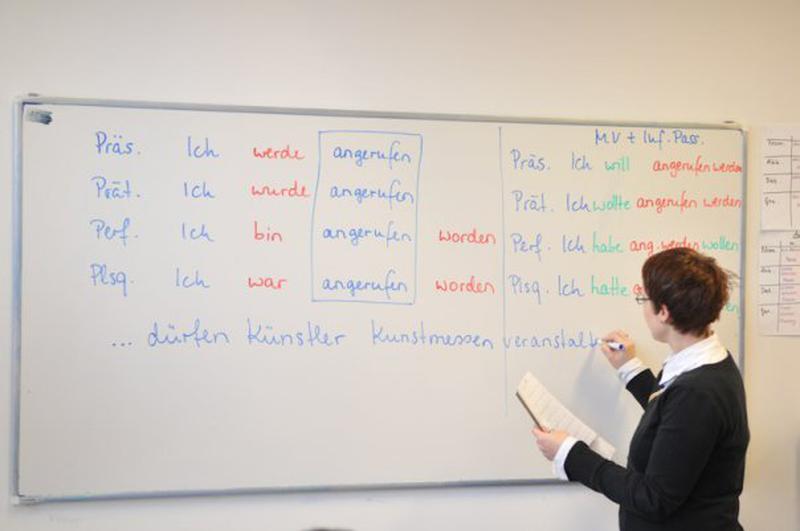 Präs. Ich werde angerufen
Prät. Ich wurde angerufen
Perf. Ich bin angerufen worden
Plsq. Ich war angerufen worden
MV + Inf. Pass.
Präs. Ich will angerufen werden
Prät. Ich wollte angerufen werden
Perf. Ich habe ang. werden wollen
Plsq. Ich hatte
... dürfen Künstler Kunstmessen veranstalt